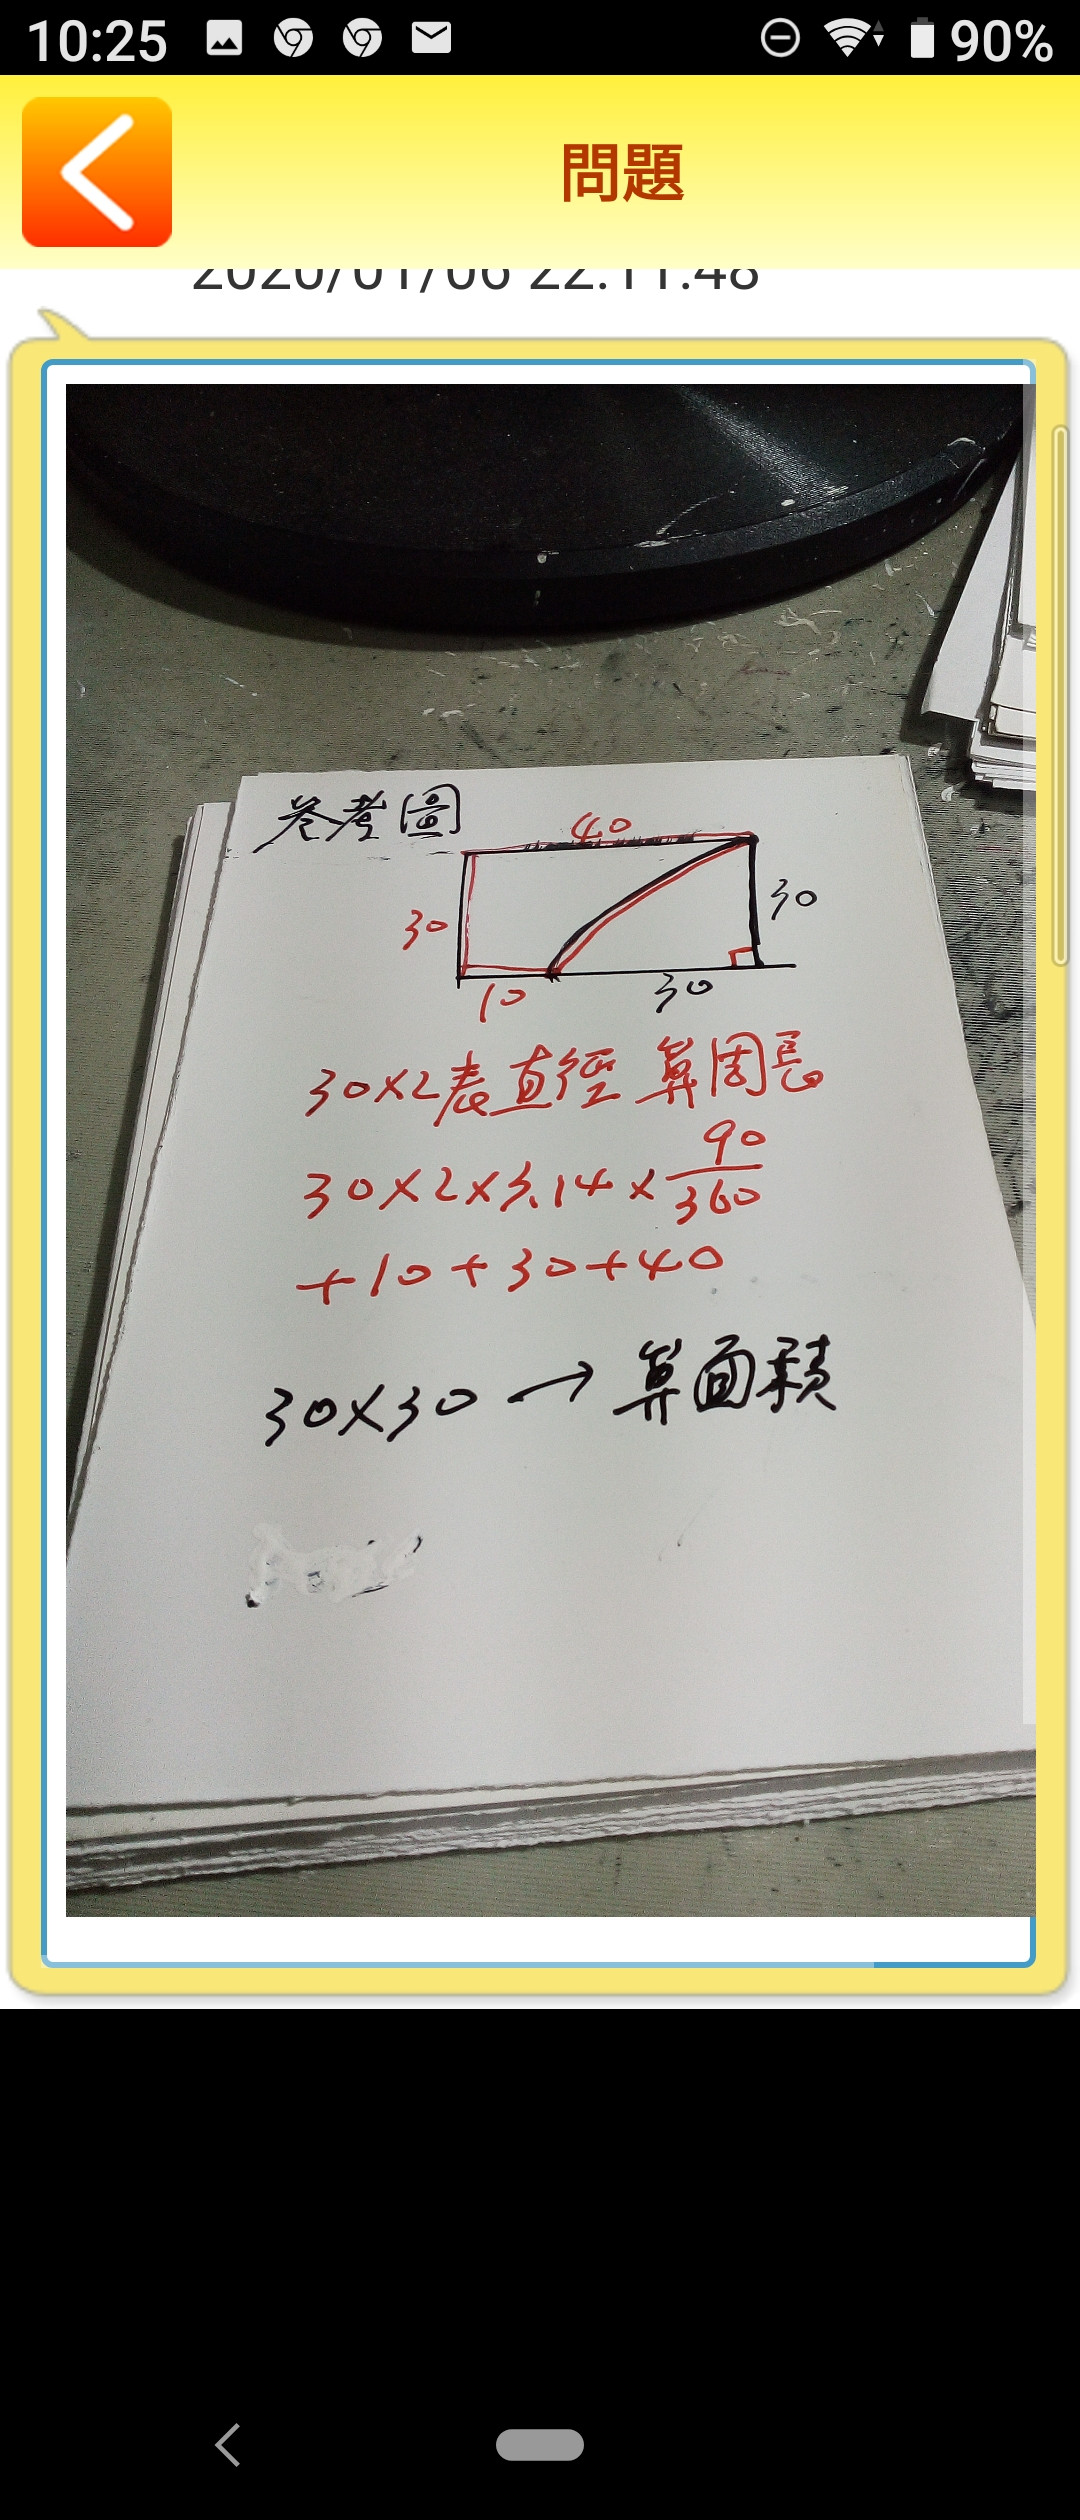 10:25
90%
問題
2020/01/06 22:11:48
参考圖
40
30
30
10
30
30×2表直徑 算周長
30×2×3.14×90/360
+10+30+40
30×30→算面積